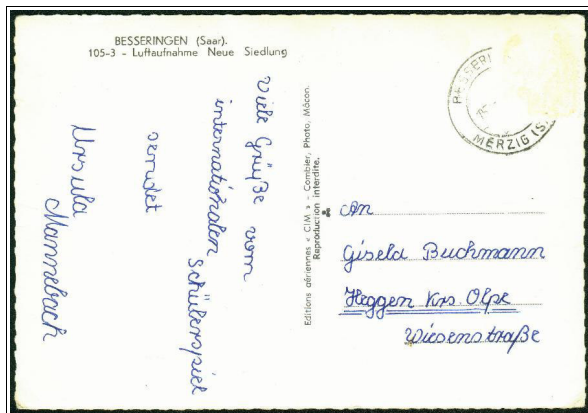 BESSERINGEN (Saar).
105-3 - Luftaufnahme Neue Siedlung
Viele Grüße vom
internationalen
Schülerspiel
sendet
Ursula
Mannebach
Editions aériennes « CIM » - Combier, Photo, Mâcon.
Reproduction interdite.
MERZIG (S
An
Gisela Buchmann
Heggen Krs. Olpe
Wiesenstraße